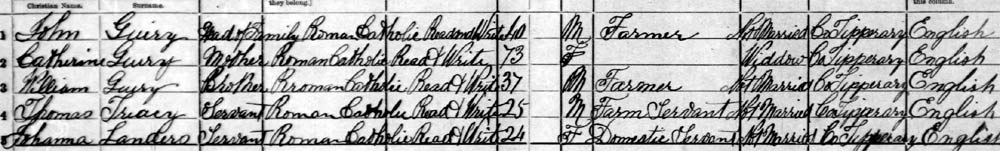 Christian Name. Surname. they belong.] this column.]
1 John Guiry Head of Family Roman Catholic Read and Write 40 M Farmer Not Married Co Tipperary English
2 Catherine Guiry Mother Roman Catholic Read & Write 73 F Widdow Co Tipperary English
3 William Guiry Brother Rroman Catholic Read & Write 37 M Farmer Not Married Co Tipperary English
4 Thomas Treacy Servant Roman Catholic Read & Write 25 M Farm Servant Not Married Co Tipperary English
5 Johanna Landers Servant Roman Catholic Read & Write 24 F Domestic Servant Not Married Co Tipperary English